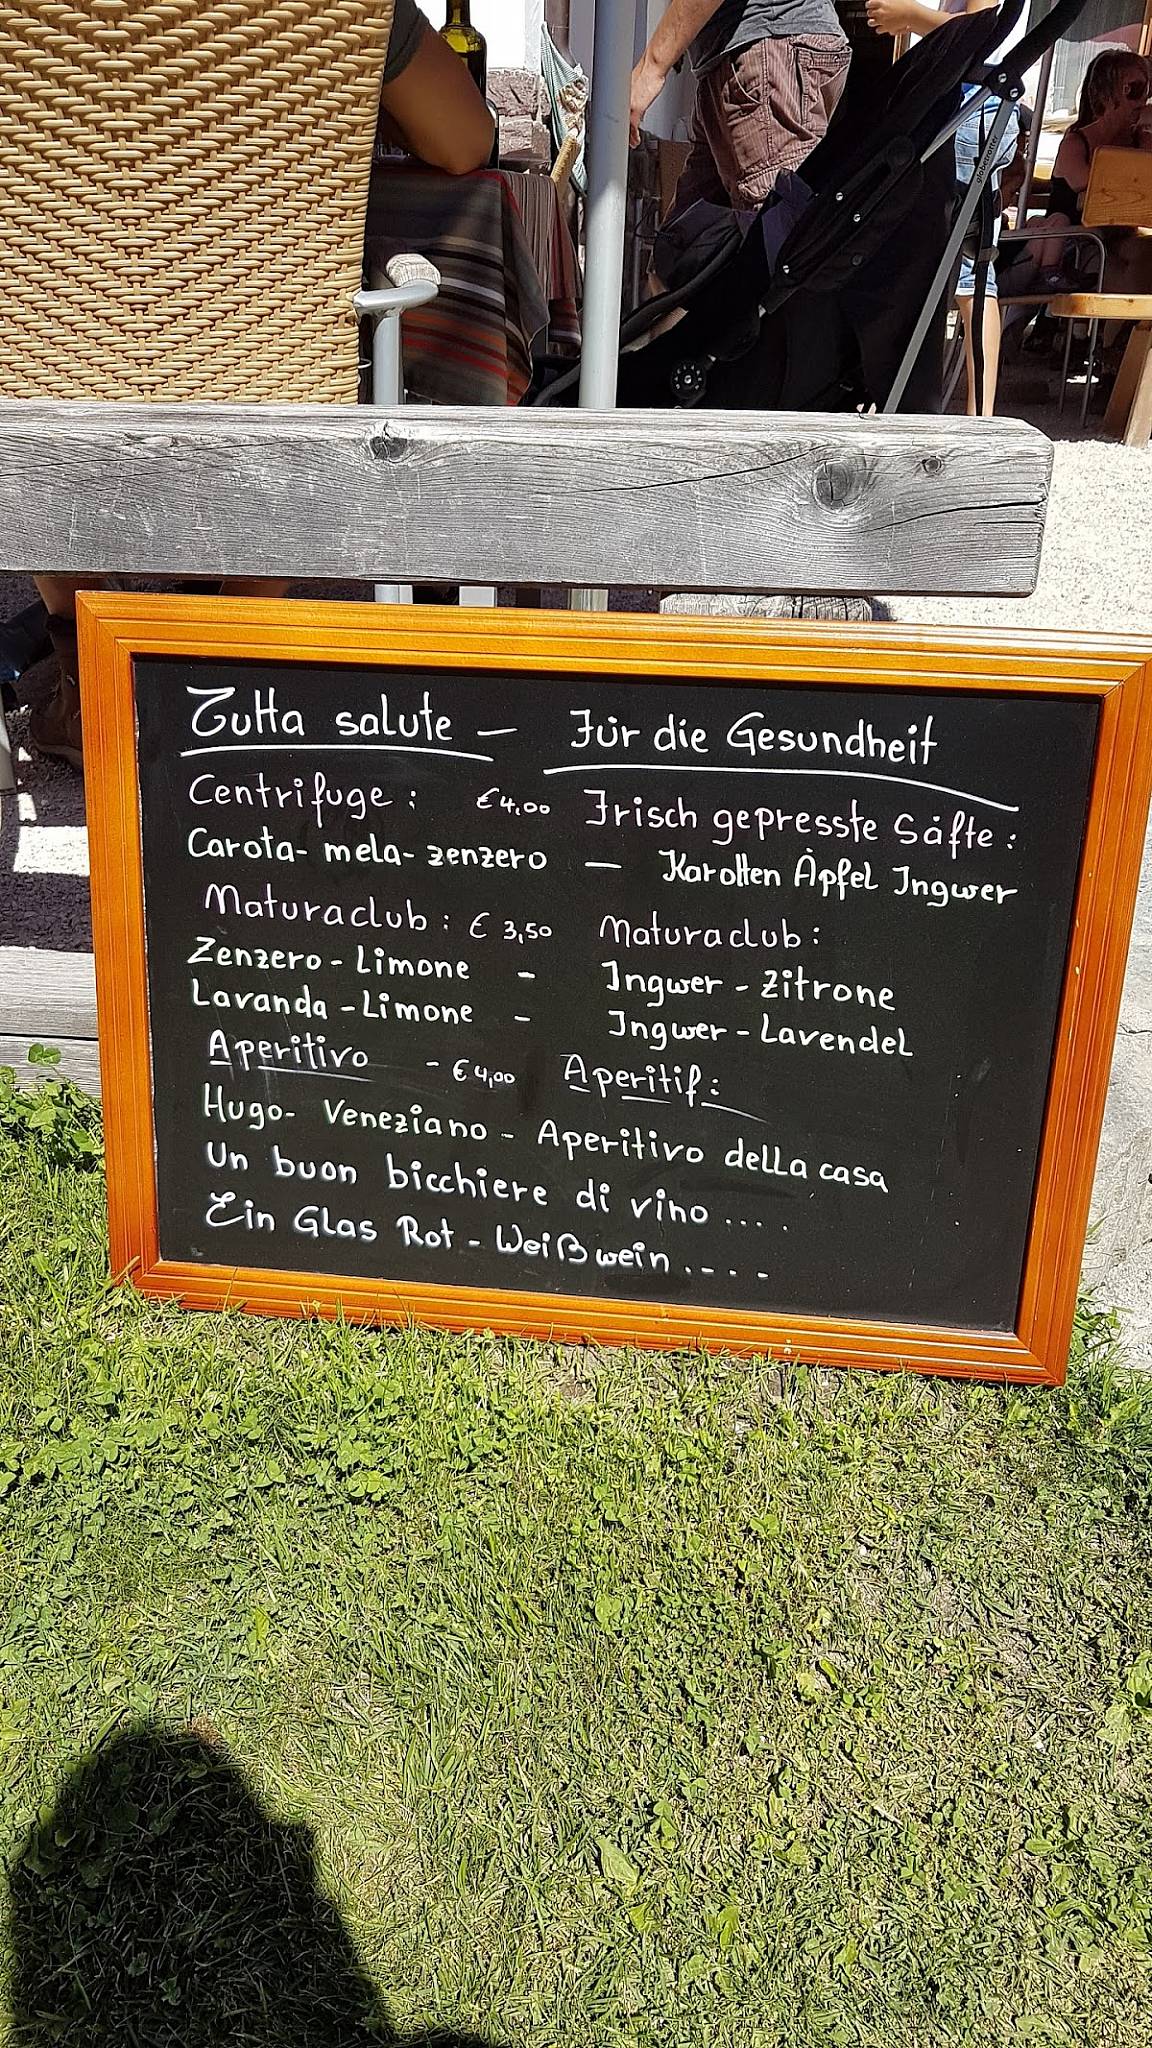 globetrotter
Tutta salute — Für die Gesundheit
Centrifuge: €4,00 Frisch gepresste Säfte:
Carota-mela-zenzero — Karotten Äpfel Ingwer
Maturaclub: € 3,50 Maturaclub:
Zenzero-Limone - Ingwer-Zitrone
Lavanda-Limone - Ingwer-Lavendel
Aperitivo - €4,00 Aperitif:
Hugo- Veneziano - Aperitivo della casa
Un buon bicchiere di vino ....
Ein Glas Rot-Weißwein ....